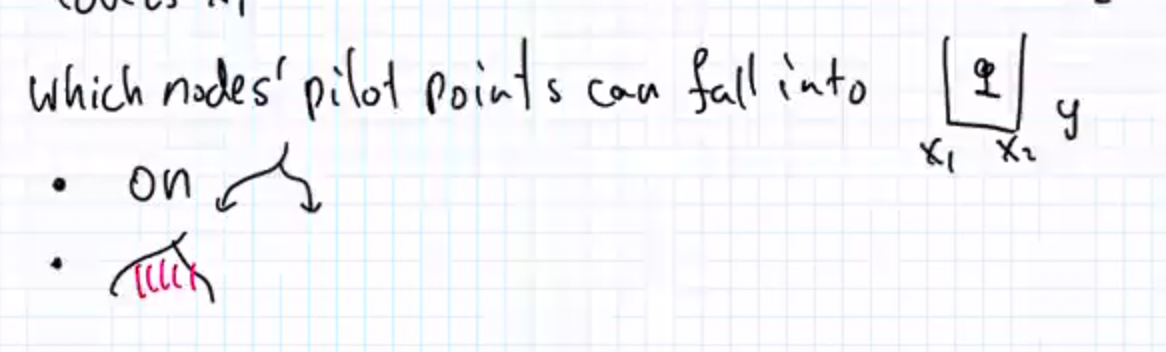 which nodes' pilot points can fall into q y
x₁ x₂
• on
•